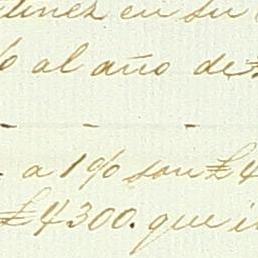 tinez en su
% al año de £
a 1% son £4
£4300. que i